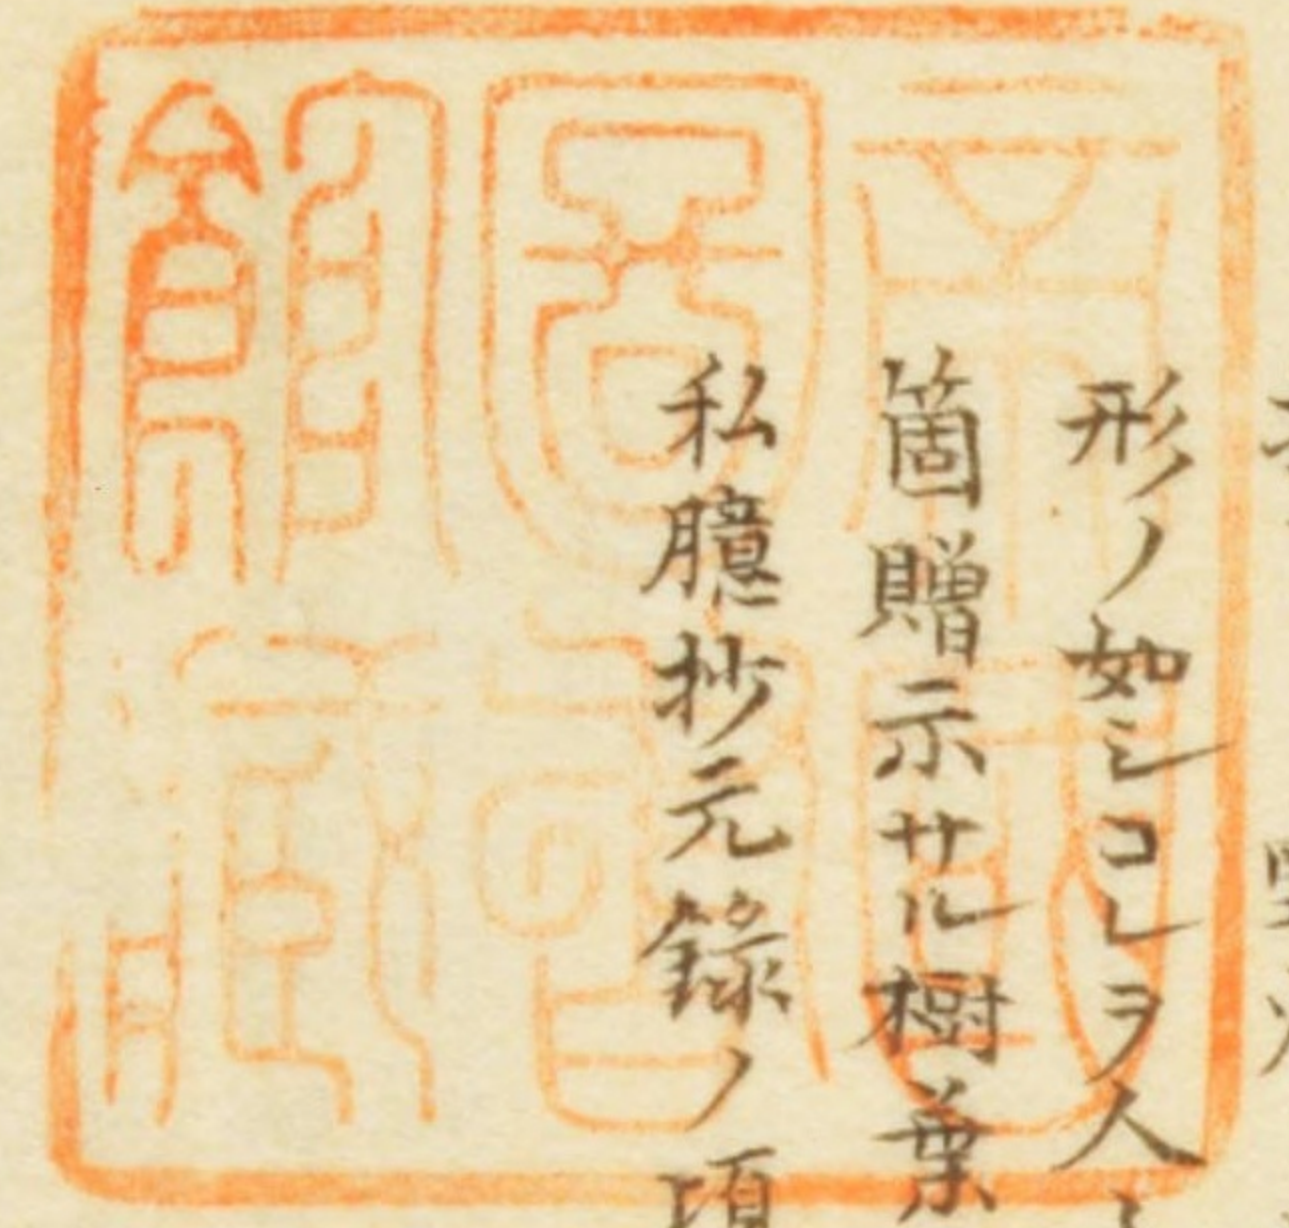 形ノ如シコレヲ人
箇贈示サル樹葉
私臆抄元錄ノ頃
帝國
圖書
館藏